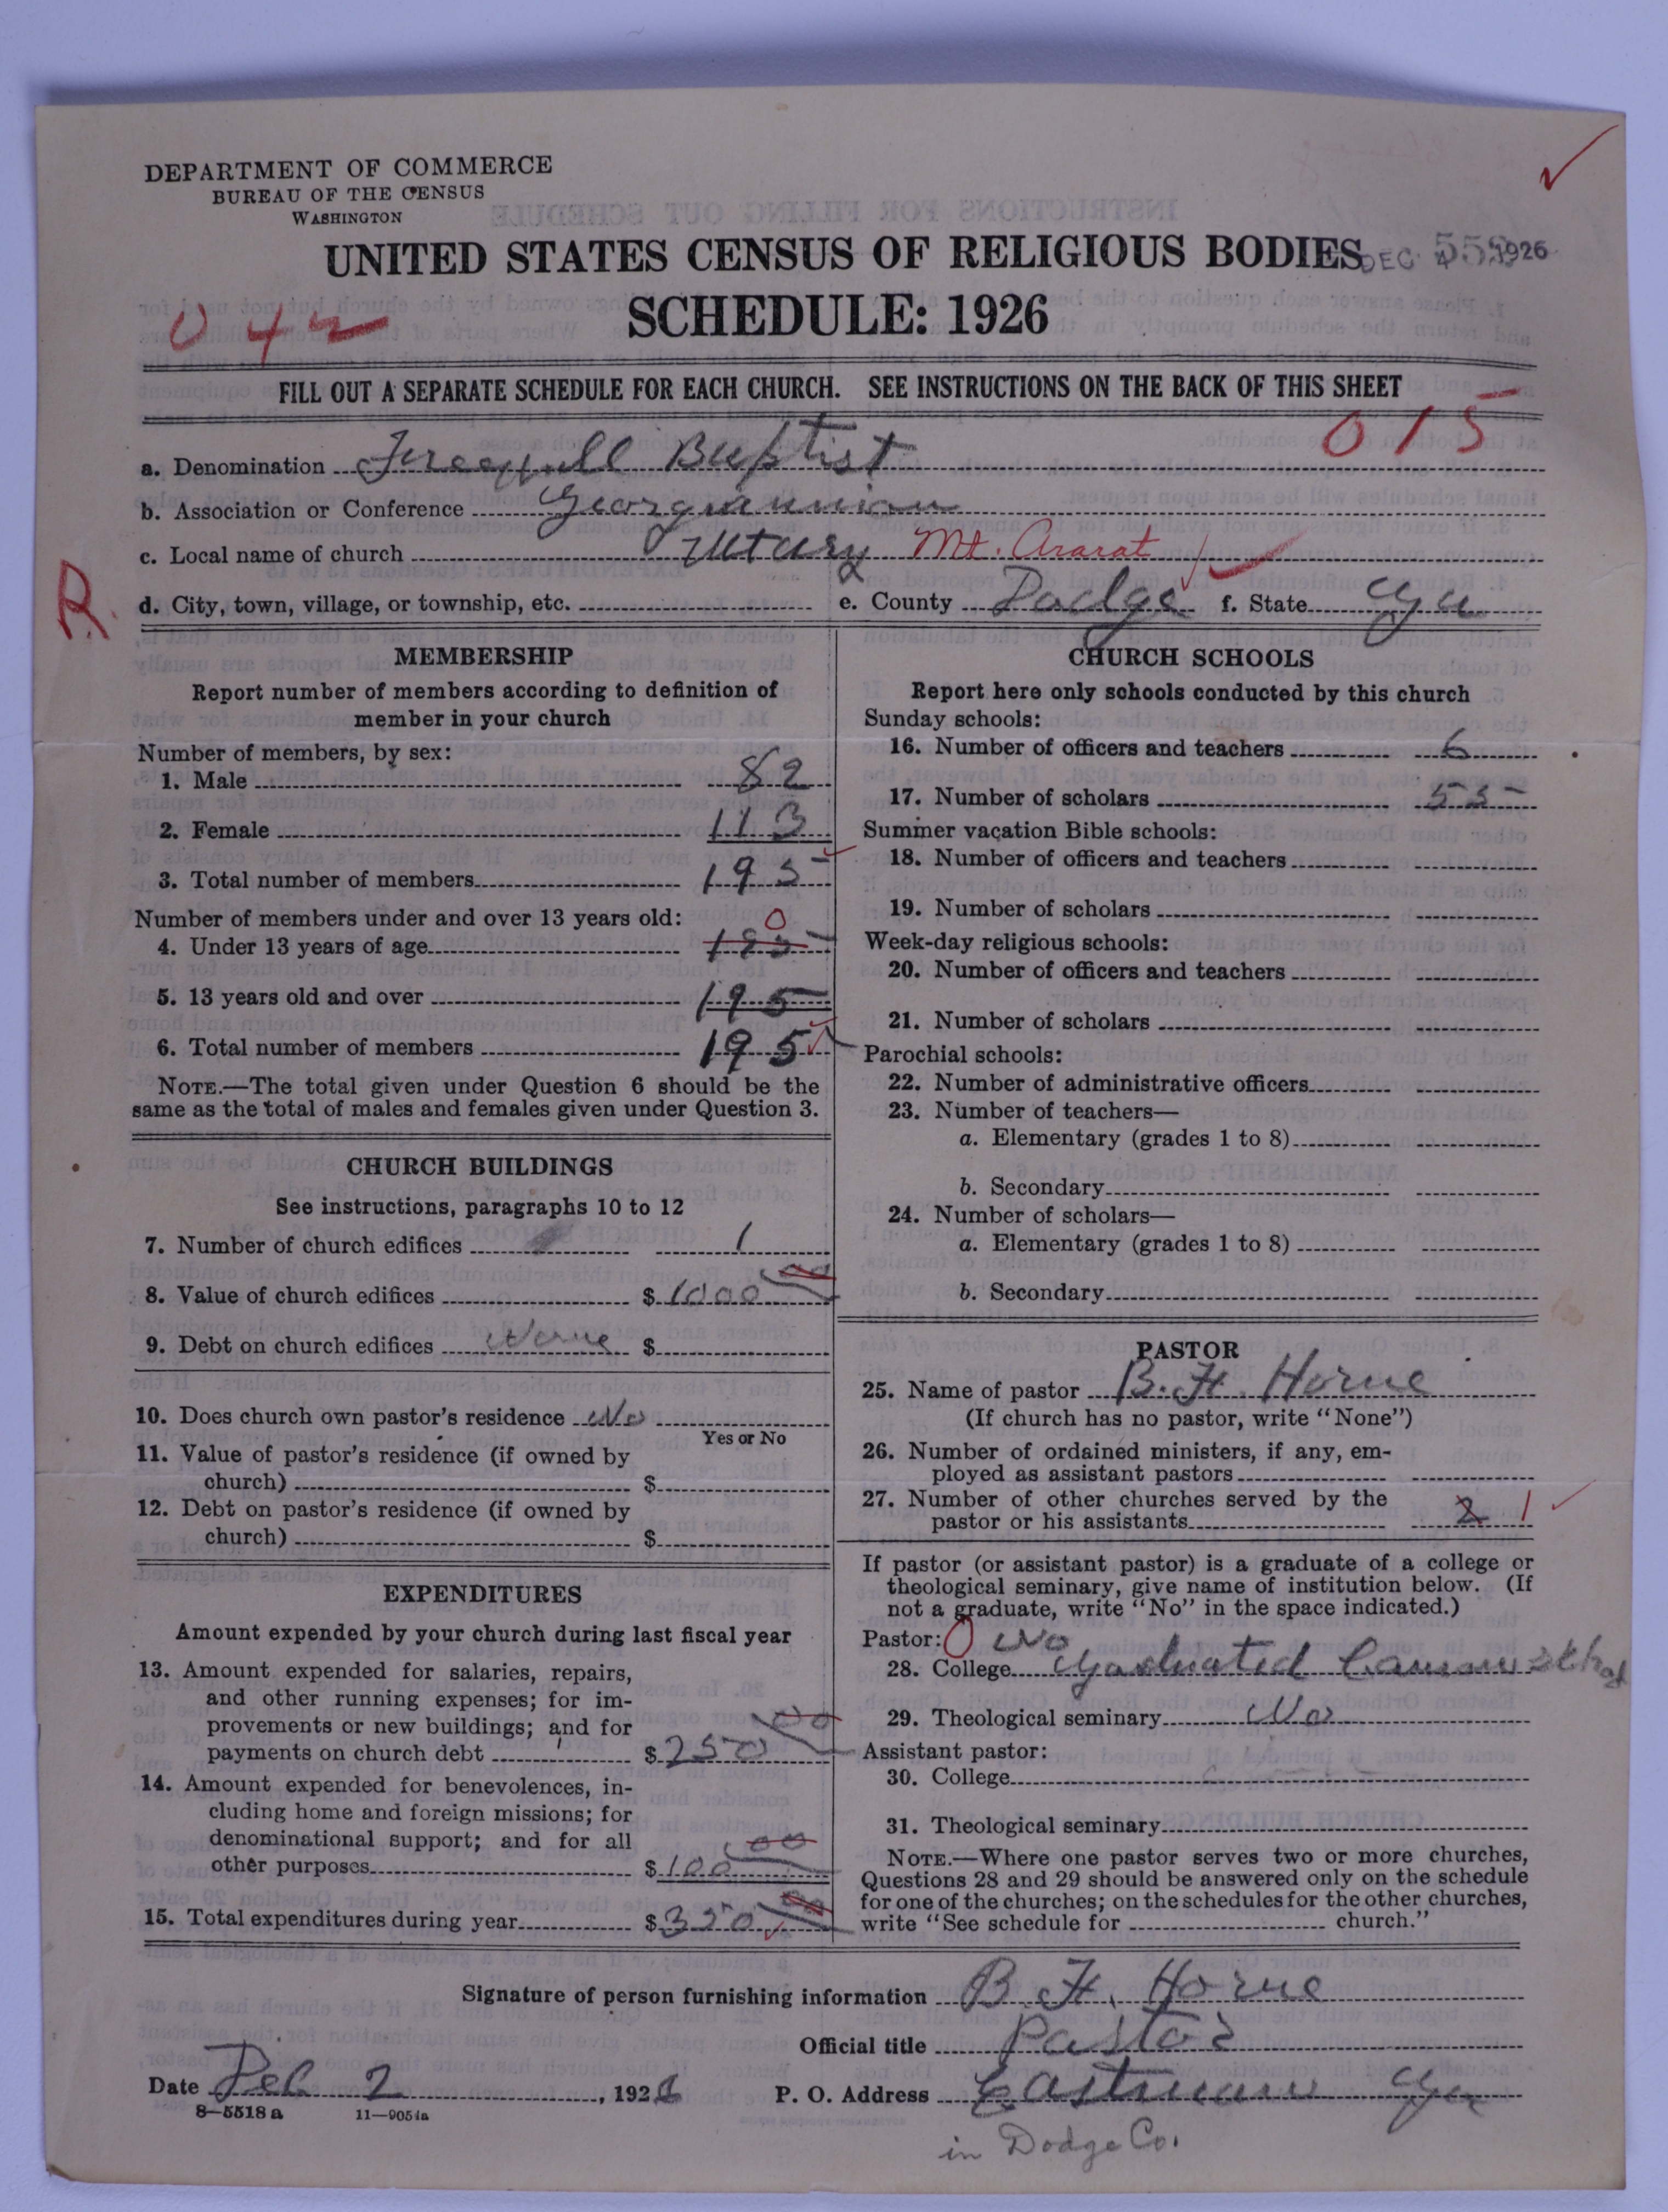 DEPARTMENT OF COMMERCE
BUREAU OF THE CENSUS
WASHINGTON
UNITED STATES CENSUS OF RELIGIOUS BODIES
DEC 1926
SCHEDULE: 1926
042
FILL OUT A SEPARATE SCHEDULE FOR EACH CHURCH. SEE INSTRUCTIONS ON THE BACK OF THIS SHEET
015
a. Denomination Freewill Baptist
b. Association or Conference Georgia union
c. Local name of church Mt. Ararat
R.
d. City, town, village, or township, etc. e. County Dodge f. State Ga
MEMBERSHIP
Report number of members according to definition of
member in your church
Number of members, by sex:
1. Male 82
2. Female 113
3. Total number of members 195
Number of members under and over 13 years old: 0
4. Under 13 years of age 195
5. 13 years old and over 195
6. Total number of members 195
NOTE.—The total given under Question 6 should be the
same as the total of males and females given under Question 3.
CHURCH BUILDINGS
See instructions, paragraphs 10 to 12
7. Number of church edifices 1
8. Value of church edifices $1000 00
9. Debt on church edifices None $
10. Does church own pastor's residence No
Yes or No
11. Value of pastor's residence (if owned by
church) $
12. Debt on pastor's residence (if owned by
church) $
EXPENDITURES
Amount expended by your church during last fiscal year
13. Amount expended for salaries, repairs,
and other running expenses; for im-
provements or new buildings; and for
payments on church debt $250 00
14. Amount expended for benevolences, in-
cluding home and foreign missions; for
denominational support; and for all
other purposes $100 00
15. Total expenditures during year $350 00
CHURCH SCHOOLS
Report here only schools conducted by this church
Sunday schools:
16. Number of officers and teachers 6
17. Number of scholars 55
Summer vacation Bible schools:
18. Number of officers and teachers
19. Number of scholars
Week-day religious schools:
20. Number of officers and teachers
21. Number of scholars
Parochial schools:
22. Number of administrative officers
23. Number of teachers—
a. Elementary (grades 1 to 8)
b. Secondary
24. Number of scholars—
a. Elementary (grades 1 to 8)
b. Secondary
PASTOR
25. Name of pastor B. H. Horne
(If church has no pastor, write "None")
26. Number of ordained ministers, if any, em-
ployed as assistant pastors
27. Number of other churches served by the
pastor or his assistants 2 1
If pastor (or assistant pastor) is a graduate of a college or
theological seminary, give name of institution below. (If
not a graduate, write "No" in the space indicated.)
Pastor: 0 No
28. College Graduated
29. Theological seminary No
Assistant pastor:
30. College
31. Theological seminary
NOTE.—Where one pastor serves two or more churches,
Questions 28 and 29 should be answered only on the schedule
for one of the churches; on the schedules for the other churches,
write "See schedule for church."
Signature of person furnishing information B. H. Horne
Official title Pastor
Date Dec 2, 1926 P. O. Address Eastman Ga
8—5518 a 11—9051a
in Dodge Co.